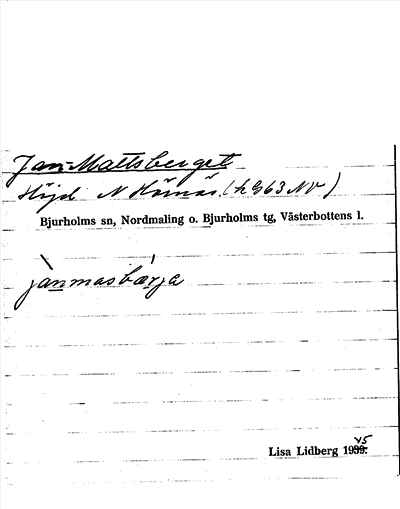 Jan-Mattsberget
Höjd N Hörnås. (h 963 NV)
Bjurholms sn, Nordmaling o. Bjurholms tg, Västerbottens l.
jànmasbárja
Lisa Lidberg 1939. 45